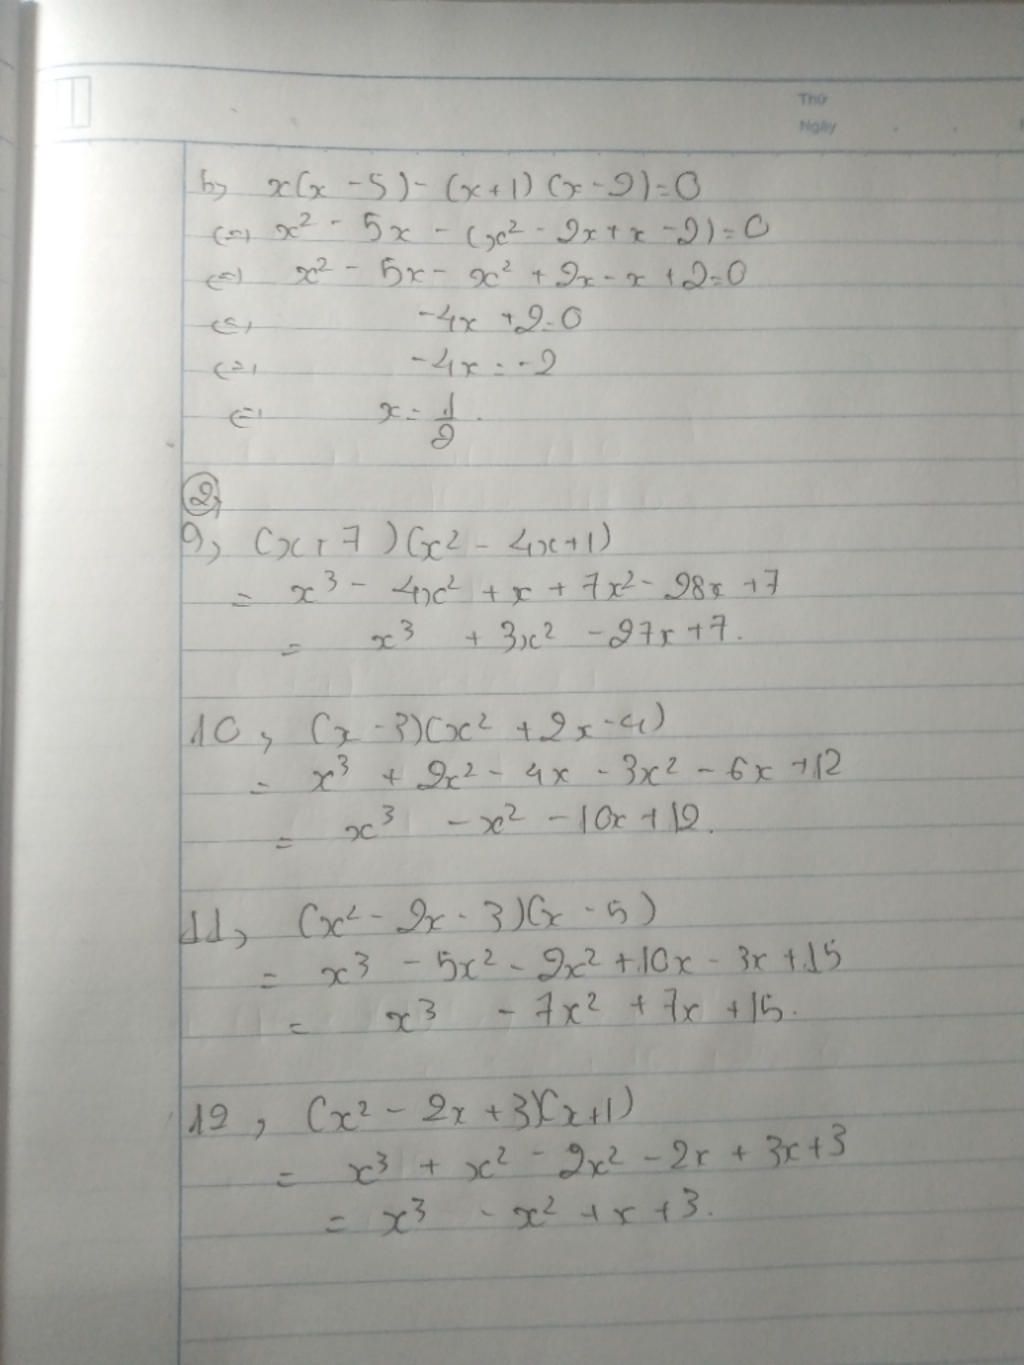 Thứ
Ngày
b, x(x - 5) - (x+1) (x - 2) = 0
(=) x² - 5x - (x² - 2x + x - 2) = 0
(=) x² - 5x - x² + 2x - x + 2 = 0
(=) -4x + 2 = 0
(=) -4x = -2
(=) x = 1/2.
②,
9, (x + 7)(x² - 4x + 1)
= x³ - 4x² + x + 7x² - 28x + 7
= x³ + 3x² - 27x + 7.
10, (x - 3)(x² + 2x - 4)
= x³ + 2x² - 4x - 3x² - 6x + 12
= x³ - x² - 10x + 12.
11, (x² - 2x - 3)(x - 5)
= x³ - 5x² - 2x² + 10x - 3x + 15
= x³ - 7x² + 7x + 15.
12, (x² - 2x + 3)(x + 1)
= x³ + x² - 2x² - 2x + 3x + 3
= x³ - x² + x + 3.